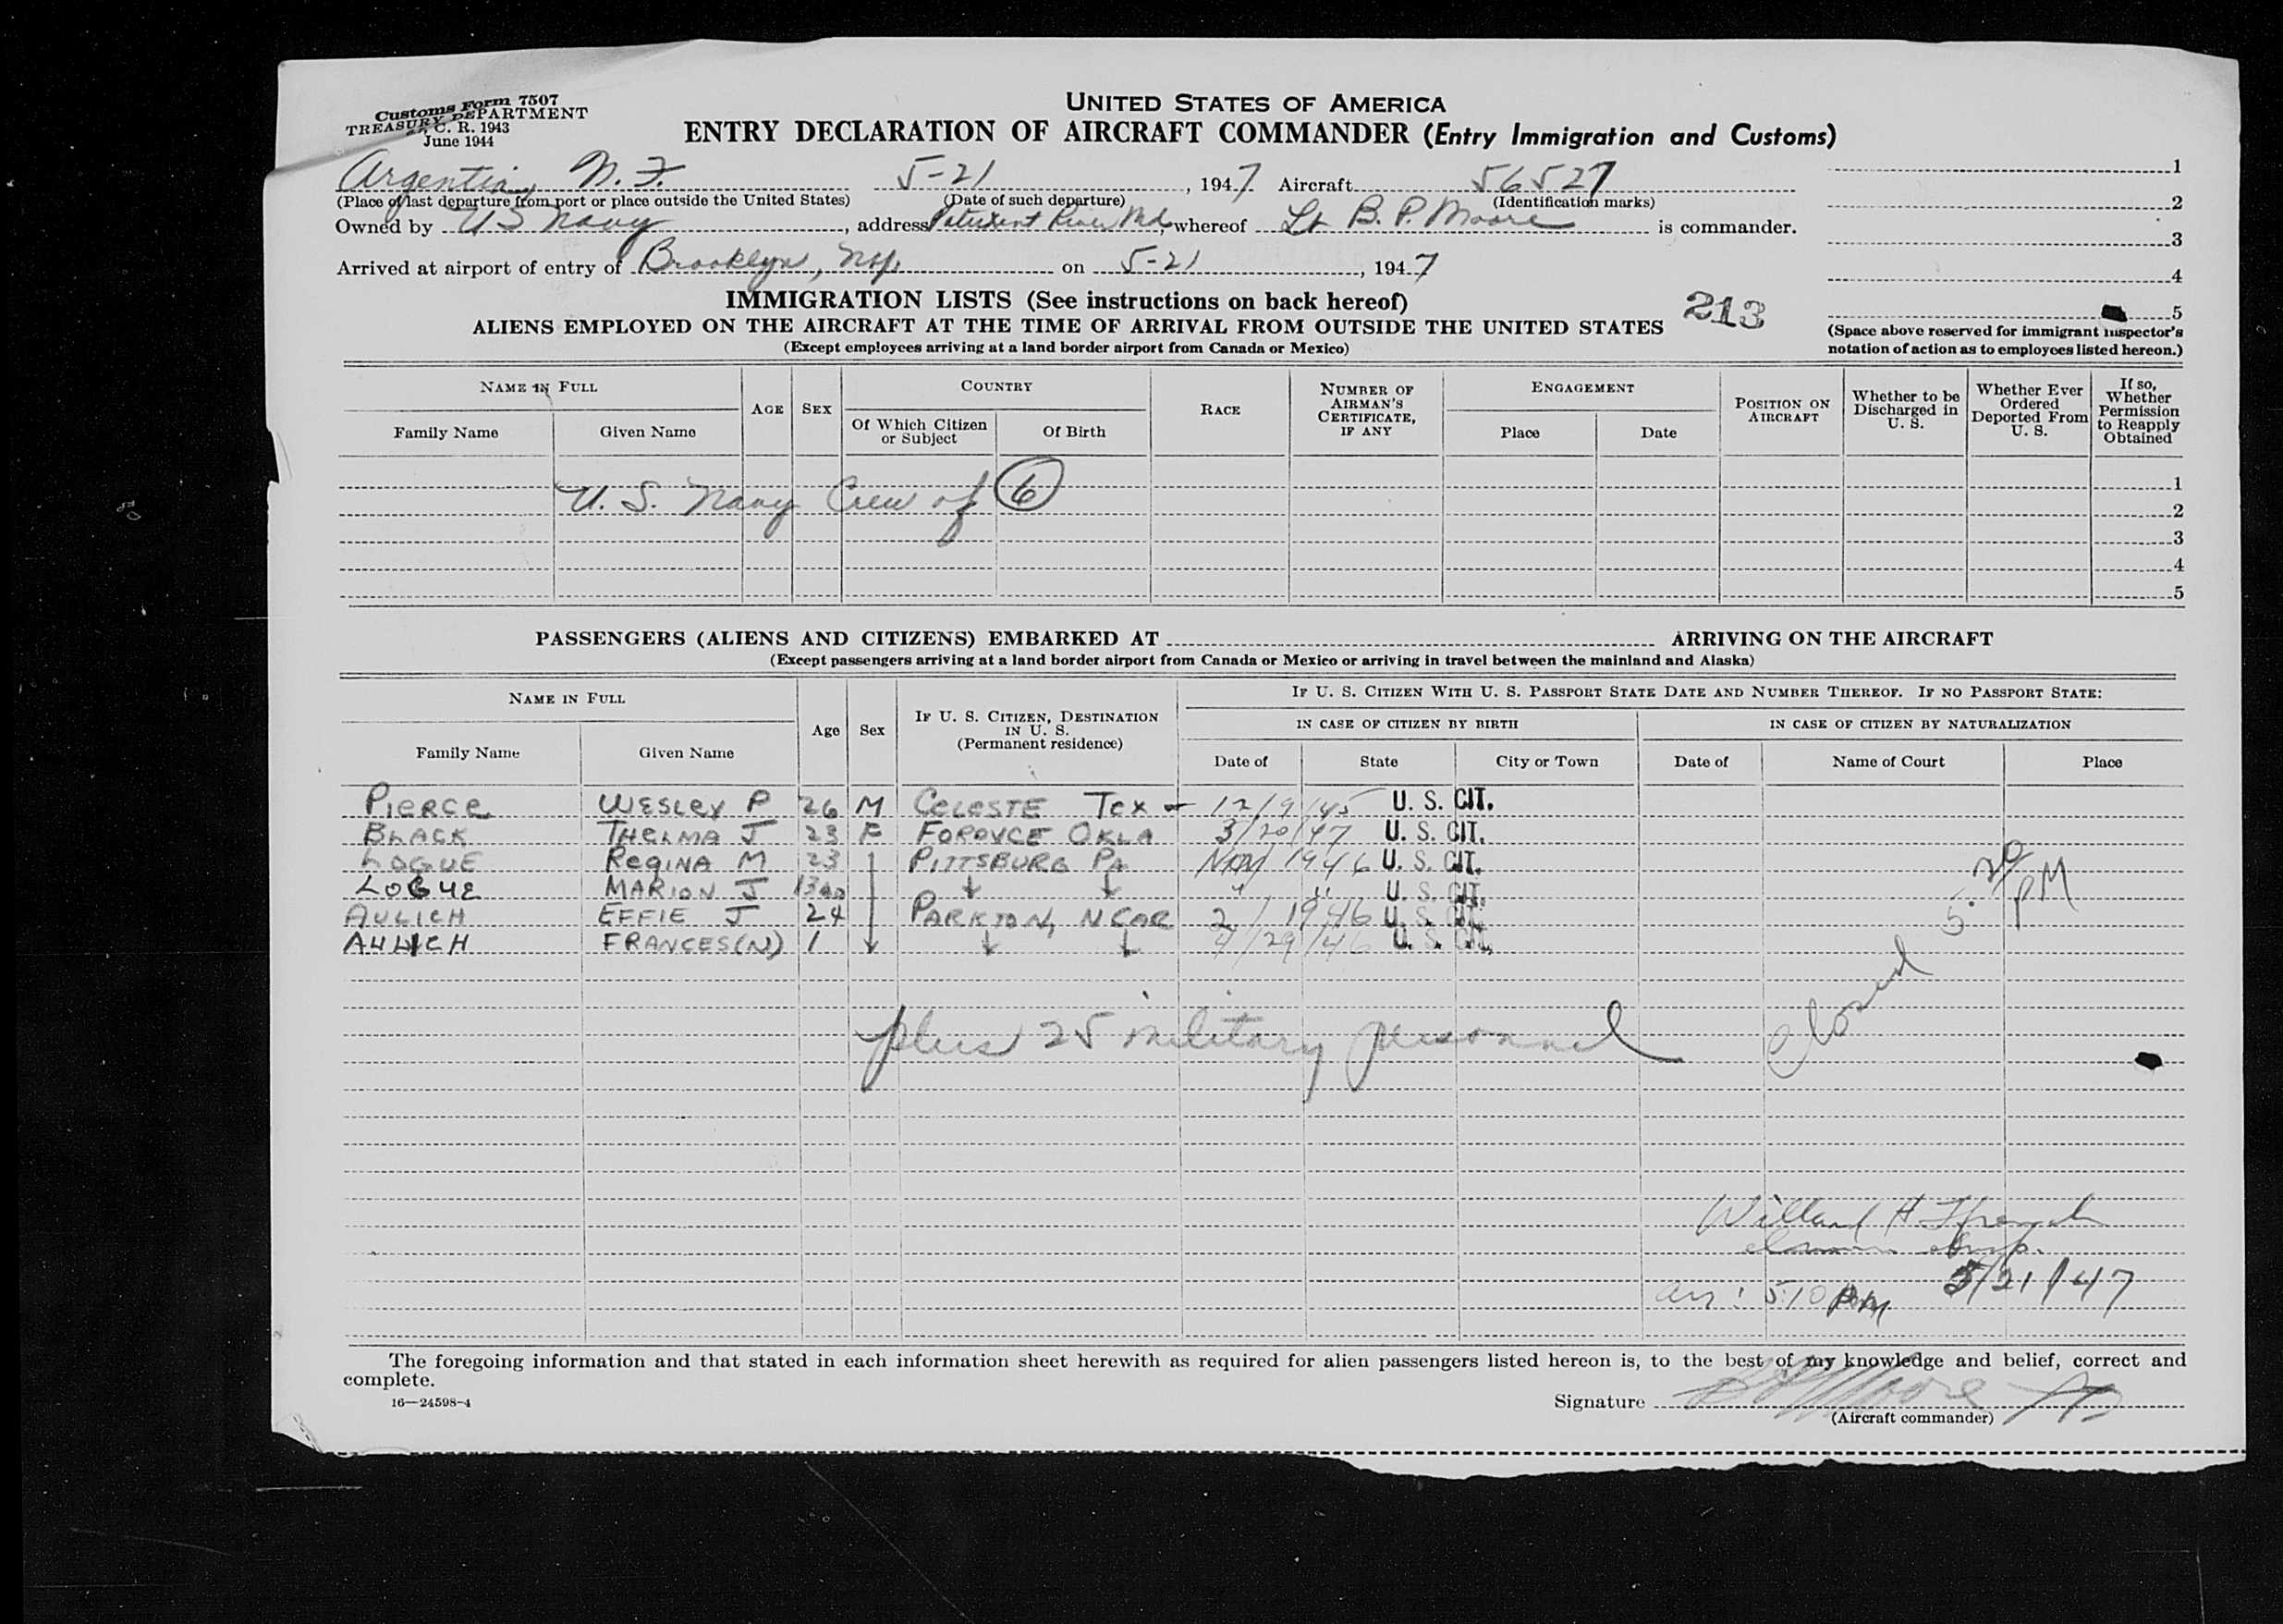 Customs Form 7507
TREASURY DEPARTMENT
C. R. 1943
June 1944
UNITED STATES OF AMERICA
ENTRY DECLARATION OF AIRCRAFT COMMANDER (Entry Immigration and Customs)
Argentia, N.F. 5-21, 1947 Aircraft 56527
(Place of last departure from port or place outside the United States) (Date of such departure) (Identification marks)
Owned by US Navy, address Patuxent River Md, whereof Lt B. P. Moore is commander.
Arrived at airport of entry of Brooklyn, on 5-21, 1947
1
2
3
4
5
(Space above reserved for immigrant inspector's
notation of action as to employees listed hereon.)
IMMIGRATION LISTS (See instructions on back hereof)
213
ALIENS EMPLOYED ON THE AIRCRAFT AT THE TIME OF ARRIVAL FROM OUTSIDE THE UNITED STATES
(Except employees arriving at a land border airport from Canada or Mexico)
NAME IN FULL
Family Name Given Name
AGE SEX
COUNTRY
Of Which Citizen or Subject Of Birth
RACE
NUMBER OF AIRMAN'S CERTIFICATE, IF ANY
ENGAGEMENT
Place Date
POSITION ON AIRCRAFT
Whether to be Discharged in U. S.
Whether Ever Ordered Deported From U. S.
If so, Whether Permission to Reapply Obtained
1
U. S. Navy Crew of 6 2
3
4
5
PASSENGERS (ALIENS AND CITIZENS) EMBARKED AT ARRIVING ON THE AIRCRAFT
(Except passengers arriving at a land border airport from Canada or Mexico or arriving in travel between the mainland and Alaska)
NAME IN FULL
Family Name Given Name
Age Sex
IF U. S. CITIZEN, DESTINATION IN U. S.
(Permanent residence)
IF U. S. CITIZEN WITH U. S. PASSPORT STATE DATE AND NUMBER THEREOF. IF NO PASSPORT STATE:
IN CASE OF CITIZEN BY BIRTH IN CASE OF CITIZEN BY NATURALIZATION
Date of State City or Town Date of Name of Court Place
PIERCE WESLEY P 26 M CELESTE TEX - 12/9/45 U. S. CIT.
BLACK THELMA J 23 F FORDYCE OKLA 3/20/47 U. S. CIT.
LOGUE REGINA M 23 PITTSBURG PA Nov 1946 U. S. CIT.
LOGUE MARION J ↓ ↓ " " U. S. CIT.
AULICH EFFIE J 24 PARKTON, N CAR 2/1946 U. S. CIT.
AULICH FRANCES(N) 1 ↓ ↓ 4/29/46 U. S. CIT.
closed 5:20 PM
plus 25 military personnel
Willard H
5/21/47
arr: 5:10 PM
The foregoing information and that stated in each information sheet herewith as required for alien passengers listed hereon is, to the best of my knowledge and belief, correct and
complete.
16—24598-4
Signature B P Moore
(Aircraft commander)